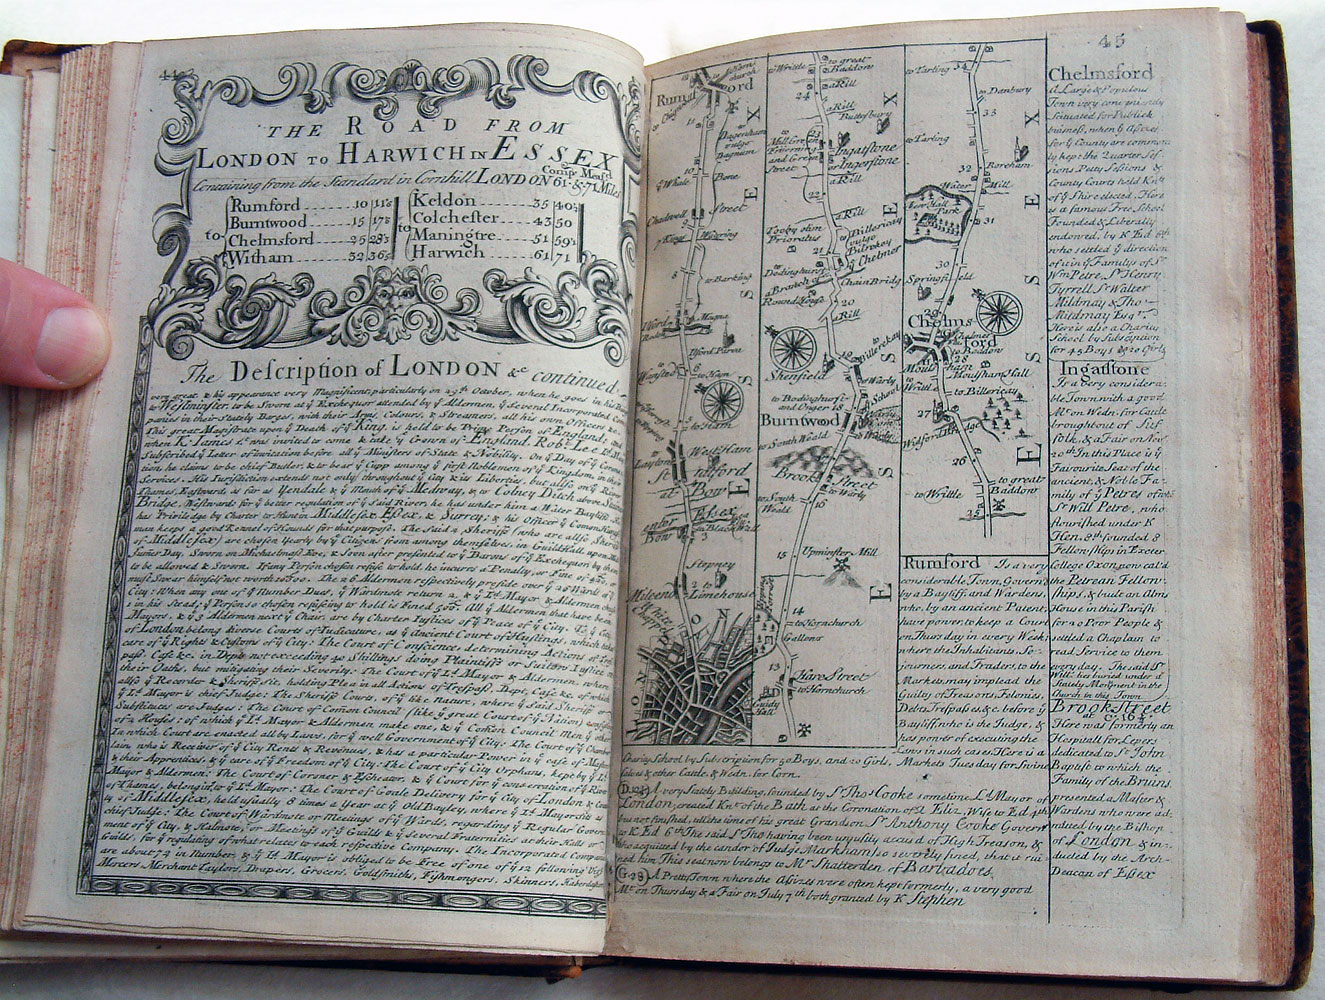 44
THE ROAD FROM
LONDON TO HARWICH IN ESSEX
Containing from the Standard in Cornhill LONDON Comp. 61 & Meas.d 71 Miles
to
Rumford 10 11 2/8
Burntwood 15 17
Chelmsford 25 28
Witham 32 36
to
Keldon 35 40
Colchester 43 50
Maningtre 51 59
Harwich 61 71
The Description of LONDON &c continued.
very great, & his appearance very Magnificent, particularly on 29th October, when he goes in his
to Westminster to be Sworn at ye Exchequer attended by ye Aldermen, ye Several Incorporated
panies in their Stately Barges, with their Arms, Colours, & Streamers, all his own Officers &c
This great Magistrate upon ye Death of ye King, is held to be Prime Person of England, and
when K. James 1st was invited to come & take ye Crown of England, Robt Lee Ld
Subscribed ye Letter of invitation before all ye Ministers of State & Nobility. On ye Day of ye
tion, he claims to be chief Butler, & to bear ye Cupp among ye first Noblemen of ye Kingdom, in
Services. His Iurisdiction extends not only throughout ye City & its Liberties, but allso on ye River
Thames, Eastwards as far as Yendale & ye Mouth of ye Medway, & to Colney Ditch above
Bridge, Westwards for ye better regulation of ye Said River, he has under him a Water Bayliff.
the Priviledge by Charter to Hunt in Middlesex Essex & Surrey; & his Officer ye Common
man keeps a good Kennel of Hounds for that purpose. The Said 2 Sheriffs (who are allso
of Middlesex) are chosen Yearly by ye Citizens from among themselves, in Guildhall, upon
Day, Sworn on Michaelmass Eve, & Soon after presented to ye Barons of ye Exchequer
to be allowed & Sworn. If any Person chosen refuse to hold, he incurrs a Penalty, or Fine of
must Swear himself not worth 10000. The 26 Aldermen respectively preside over ye 26 Wards of
City: When any one of ye Number Dies, ye Wardmote return 2, & ye Ld Mayor & Aldermen
1 in his Stead; ye Person so chosen refusing to hold is Fined 500. All ye Aldermen that have been
Mayors, & ye 3 Aldermen next ye Chair, are by Charter Iustices of ye Peace of ye City. To ye City
of London belong diverse Courts of Iudicature, as ye Ancient Court of Hustings, which takes
care of ye Rights & Customs of ye City. The Court of Conscience, determining Actions of
pass, Case &c. in Debt not exceeding 40 Shillings doing Plaintiffs or Suitors Iustice on
their Oaths, but mitigating their Severity. The Court of ye Ld Mayor & Aldermen, where
allso ye Recorder & Sheriffs sit, holding Plea in all Actions of Trespass, Dept, Case &c. of which
ye Ld Mayor is chief Iudge: The Sheriffs Courts, of ye like nature, where ye Said Sheriffs or
Substitutes are Iudges: The Court of Common Council (like ye great Court of ye Nation)
of 2 Houses: of which ye Ld Mayor & Aldermen make one, & ye Common Council Men ye other
in Which Court are enacted all by Laws, for ye well Government of ye City. The Court of ye
lain, who is Receiver of ye City Rents & Revenues, & has a particular Power in ye case of
& their Apprentices, & ye care of ye Freedom of ye City. The Court of ye City Orphans, kept by ye Ld
Mayor & Aldermen: The Court of Coroner & Escheator, & ye Court for ye conservation of ye River
of Thames, belonging to ye Ld Mayor: The Court of Goale Delivery for ye City of London &
ty of Middlesex, held usually 8 times a Year at ye Old Bayley, where ye Ld Mayor is
chief Iudge: The Court of Wardmote or Meetings of ye Wards, regarding ye Regular
ment of ye City. & Halmote, or Meetings of ye Guilds & ye Several Fraternities at their Halls
Guilds, for ye regulating of what relates to each respective Company. The Incorporated
are about 74 in Number, & ye Ld Mayor is obliged to be Free of one of ye 12 following
Mercers, Merchant Taylors, Drapers, Grocers, Goldsmiths, Fishmongers, Skinners,
45
Rumford
to Chigwell
11
Dagenham
vulgo
Dagnum
ye Whale Bone
Chadwell Street
9
8
to Barking
Ilford Magna
Ilford Parva
to Ham
to Ham
West Ham
to Layton
Stratford
at Bow
Essex
Bow
3
Stepney
2 to
Limehouse
Milend
White chappel
LONDON
to Writtle
to great
Baddow
a Rill
24
a Rill
Buttsbury
23
Ingatstone
or Ingerstone
to
Mill Green
Friern ing
and Green
Street
a Rill
22
a Rill
Tooby olim
Prioratus
to Billericay
vulgo
Bilrekey
21
to Dodinghurst
a Branch of ye Chelmer
Round House
Chain Bridg
20
a Rill
Shenfield
19
to Billerekay
to Dodinghurst
and Onger
18
Burntwood
to South Weald
Brook Street
to Warly
to South
Weald
16
15
Upminster Mill
14
to Hornchurch
Gallons
13
Hare Street
to Hornchurch
Guidy
Hall
ESSEX
to Tarling
34
to Danbury
33
to Tarling
32
Boreham
Water Mill
New Hall
Park
31
30
Springfield
29
Chelmsford
to Baddow
28
Moulsham
Moulsham Hall
to Billericay
27
Widford Bridge
26
to Writtle
to great
Baddow
25
ESSEX
Rumford Is a very
considerable Town, Govern'd
by a Bayliff and Wardens,
who, by an ancient Patent,
have power, to keep a Court
on Thursday in every Week;
where the Inhabitants, So-
journers, and Traders, to the
Markets, may implead the
Guilty of Treasons, Felonies,
Debts, Trespasses &c. before ye
Bayliff, who is the Judge, &
has power of executing the
Laws in such cases. Here is a
Charity School by Subscription for 50 Boys, and 20 Girls. Markets Tuesday for Swine
Calves & other Cattle, & Wedn. for Corn.
(D. 12¾) A very Stately Building, founded by Sr Tho: Cooke sometime Ld Mayor of
London; created Knt of the Bath at the Coronation of Q Eliz. Wife to Ed 4th
but not finished, till the time of his great Grandson Sr Anthony Cooke Govern
to K Ed 6th. The said Sr Tho having been unjustly accus'd of High Treason, &
acquitted by the candor of Judge Markham; so severely fined, that it rui-
ned him This seat now belongs to Mr Shatterden of Barbadoes.
(G. 28) A Pretty Town where the Assizes were often kept formerly, a very good
Mt on Thursday & a Fair on July 7th both granted by K Stephen
Chelmsford
A Large & Populous
Town very conveniently
Situated for Publick
business, when ye Assizes
for ye County are common-
ly kept: the Quarter Ses-
sions, Petty Sessions &
County Courts held Knts
of ye Shire elected. Here
is a famous Free School
Founded & Liberally
endowed, by K Ed 6th
who settled ye direction
of it in ye Family of Sr
Wm Petre, Sr Henry
Tyrrell, Sr Walter
Mildmay & Tho:
Mildmay Esqr.
Here is also a Charity
School by Subscription
for 45 Boys & 20 Girls
Ingatstone
Is a very considera-
ble Town, with a good
Mt on Wedn. for Cattle
brought out of Suf-
folk, & a Fair on Nov.
20th In this Place is ye
Favourite Seat of the
ancient, & Noble Fa-
mily of ye Petres of wch
Sr Will Petre, who
flourished under K
Hen. 8th founded 8
Fellowships in Exeter
College Oxon, now cal'd
the Petrean Fellow-
ships, & built an Alms
House in this Parish
for 20 Poor People &
settled a Chaplain to
read Service to them
every day. The said Sr
Will: lies buried under a
Stately Monument in the
Church in this Town
Brook Street
at C. 16¼.
Here was formerly an
Hospitall for Lepers
dedicated to St. John
Baptist to which the
Family of the Bruins
presented a Master &
Wardens who were ad-
mitted by the Bishop
of London & in-
ducted by the Arch-
Deacon of Essex